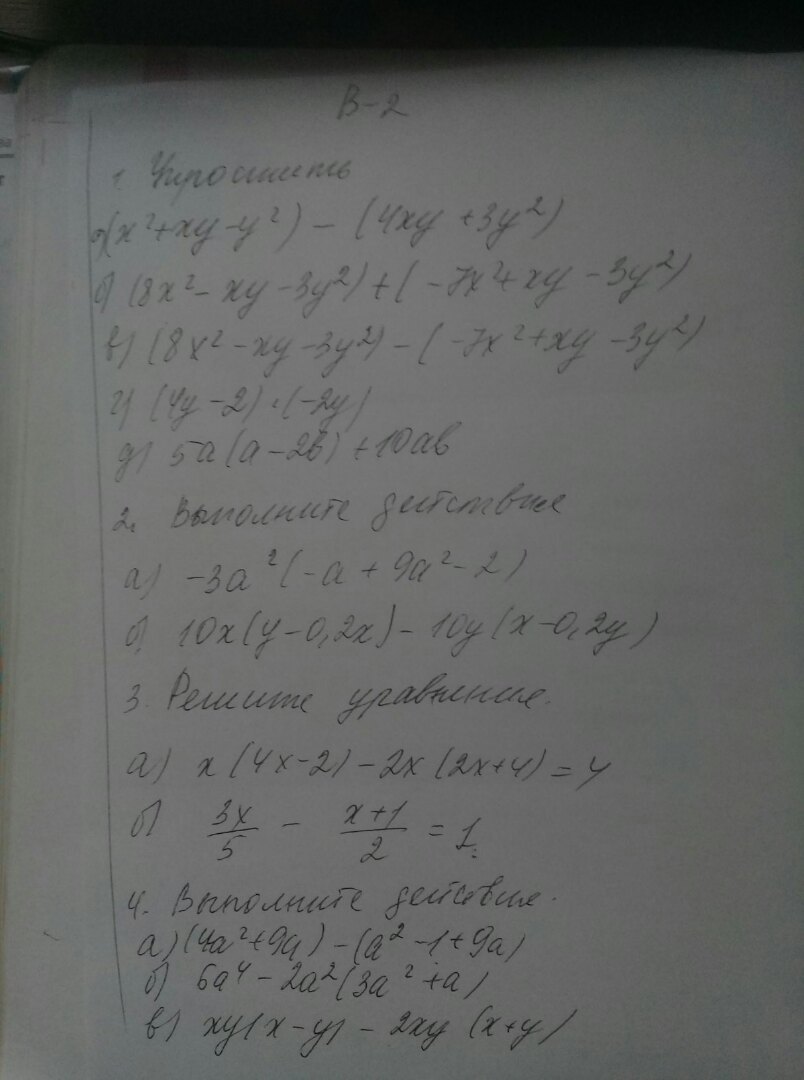 В-2
1 Упростить
а) (x²+xy-y²) - (4xy+3y²)
б) (8x² - xy - 3y²) + (-7x²+xy - 3y²)
в) (8x² - xy - 3y²) - (-7x²+xy - 3y²)
г) (4y - 2) · (-2y)
д) 5a(a-2в) + 10aв
2. Выполните действие
а) -3a²(-a + 9a² - 2)
б) 10x(y-0,2x) - 10y(x-0,2y)
3. Решите уравнение.
а) x(4x-2) - 2x(2x+4) = 4
б) 3x/5 - x+1/2 = 1.
4. Выполните действие.
а) (4a²+9a) - (a² - 1 + 9a)
б) 6a⁴ - 2a²(3a² + a)
в) xy(x-y) - 2xy (x+y)